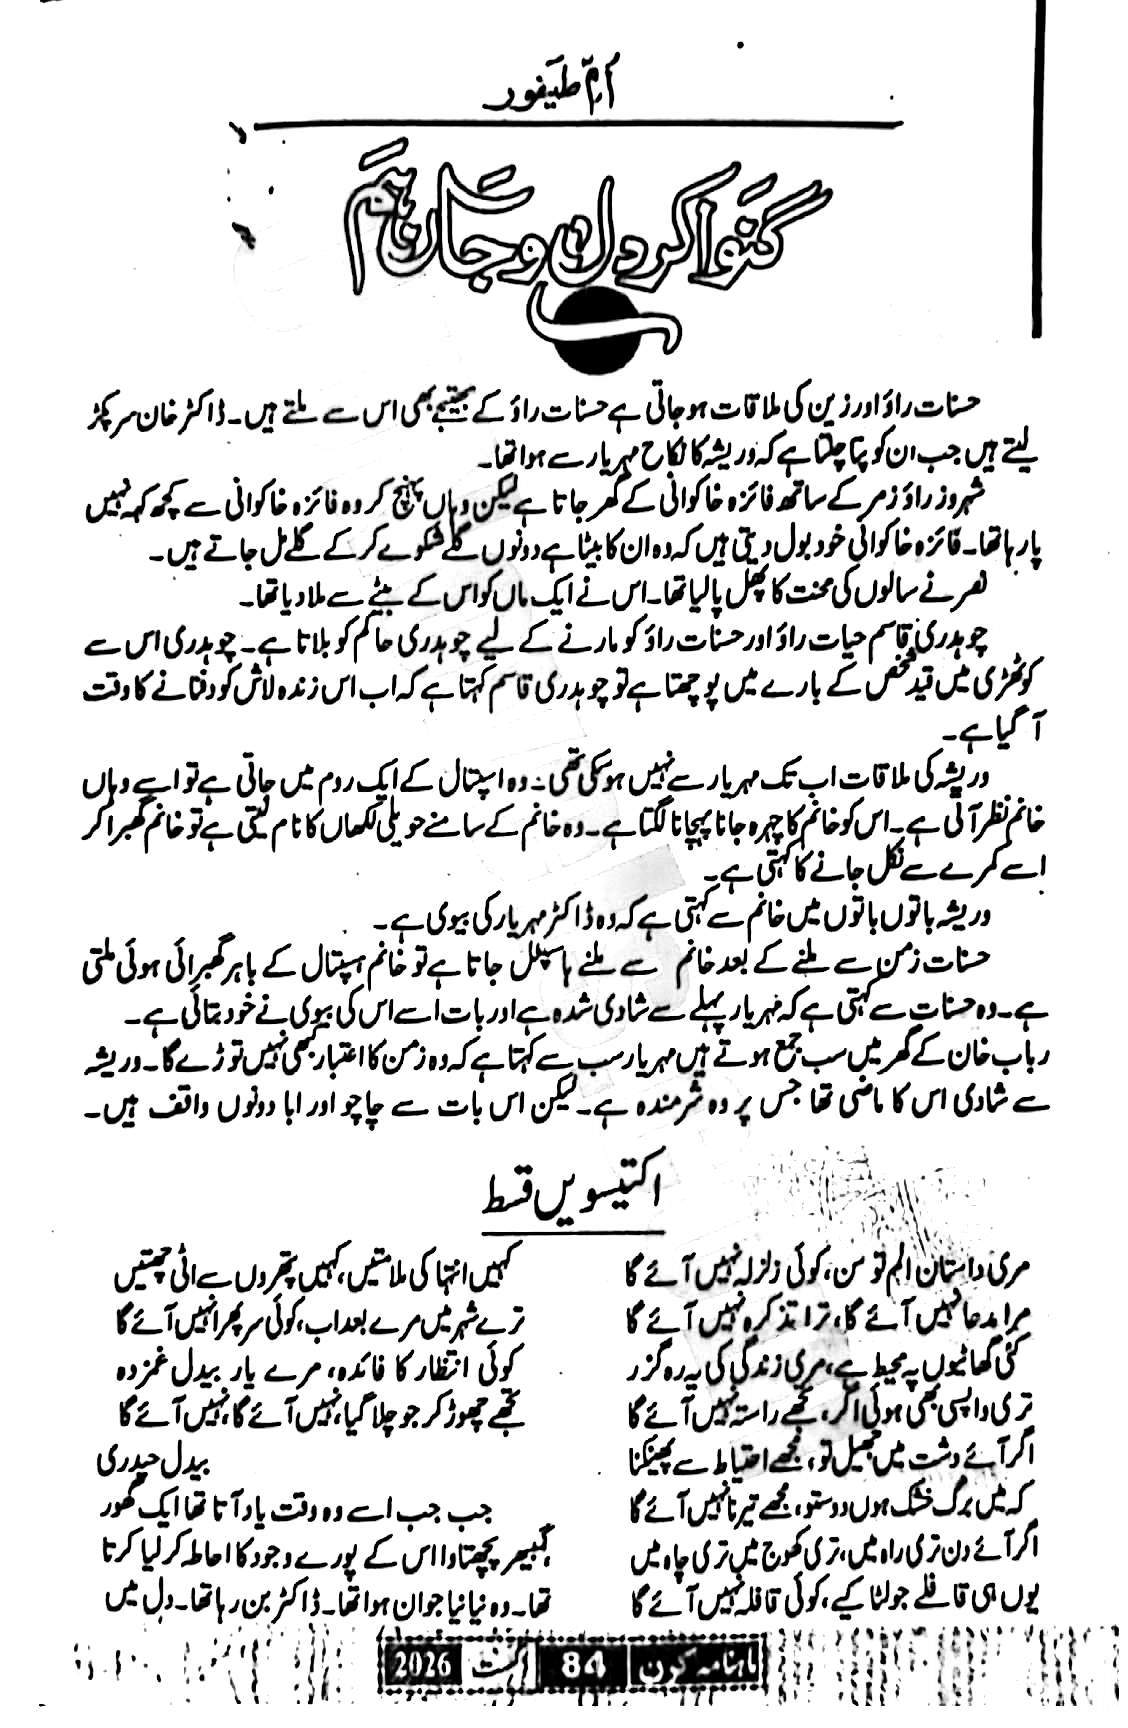 اُمِّ طیفور
گنوا کر دل و جاں ہم
حسنات راؤ اور زین کی ملاقات ہو جاتی ہے حسنات راؤ کے بھتیجے بھی اس سے ملتے ہیں۔ ڈاکٹر خان سر پکڑ
لیتے ہیں جب ان کو پتا چلتا ہے کہ وریشہ کا نکاح مہریار سے ہوا تھا۔
شہروز راؤ زمر کے ساتھ فائزہ خاکوانی کے گھر جاتا ہے لیکن وہاں پہنچ کر وہ فائزہ خاکوانی سے کچھ کہہ نہیں
پا رہا تھا۔ فائزہ خاکوانی خود بول دیتی ہیں کہ وہ ان کا بیٹا ہے دونوں گلے شکوے کر کے گلے مل جاتے ہیں۔
نصر نے سالوں کی محنت کا پھل پا لیا تھا۔ اس نے ایک ماں کو اس کے بیٹے سے ملا دیا تھا۔
چوہدری قاسم حیات راؤ اور حسنات راؤ کو مارنے کے لیے چوہدری حاکم کو بلاتا ہے۔ چوہدری اس سے
کوٹھڑی میں قید شخص کے بارے میں پوچھتا ہے تو چوہدری قاسم کہتا ہے کہ اب اس زندہ لاش کو دفنانے کا وقت
آ گیا ہے۔
وریشہ کی ملاقات اب تک مہریار سے نہیں ہو سکی تھی۔ وہ اسپتال کے ایک روم میں جاتی ہے تو اسے وہاں
خانم نظر آتی ہے۔ اس کو خانم کا چہرہ جانا پہچانا لگتا ہے۔ وہ خانم کے سامنے حویلی لکھاں کا نام لیتی ہے تو خانم گھبرا کر
اسے کمرے سے نکل جانے کا کہتی ہے۔
وریشہ باتوں باتوں میں خانم سے کہتی ہے کہ وہ ڈاکٹر مہریار کی بیوی ہے۔
حسنات زمن سے ملنے کے بعد خانم سے ملنے ہاسپٹل جاتا ہے تو خانم ہسپتال کے باہر گھبرائی ہوئی ملتی
ہے۔ وہ حسنات سے کہتی ہے کہ مہریار پہلے سے شادی شدہ ہے اور بات اسے اس کی بیوی نے خود بتائی ہے۔
رباب خان کے گھر میں سب جمع ہوتے ہیں مہریار سب سے کہتا ہے کہ وہ زمن کا اعتبار کبھی نہیں توڑے گا۔ وریشہ
سے شادی اس کا ماضی تھا جس پر وہ شرمندہ ہے۔ لیکن اس بات سے چاچو اور ابا دونوں واقف ہیں۔
اکتیسویں قسط
مری داستان الم تو سن، کوئی زلزلہ نہیں آئے گا
مرا مدعا نہیں آئے گا، ترا تذکرہ نہیں آئے گا
کئی گھاٹیوں پہ محیط ہے، مری زندگی کی یہ رہ گزر
تری واپسی بھی ہوئی اگر، تجھے راستہ نہیں آئے گا
اگر آئے دشت میں جھیل تو، مجھے احتیاط سے پھینکنا
کہ میں برگ خشک ہوں دوستو، مجھے تیرنا نہیں آئے گا
اگر آئے دن تری راہ میں، تری کھوج میں تری چاہ میں
یوں ہی قافلے جو لٹا کیے، کوئی قافلہ نہیں آئے گا
کہیں انتہا کی ملامتیں، کہیں پتھروں سے اٹی چھتیں
ترے شہر میں مرے بعد اب، کوئی سر پھرا نہیں آئے گا
کوئی انتظار کا فائدہ، مرے یار بیدل غمزدہ
تجھے چھوڑ کر جو چلا گیا، نہیں آئے گا، نہیں آئے گا
بیدل حیدری
جب جب اسے وہ وقت یاد آتا تھا ایک گھور
گمبھیر پچھتاوا اس کے پورے وجود کا احاطہ کر لیا کرتا
تھا۔ وہ نیا نیا جوان ہوا تھا۔ ڈاکٹر بن رہا تھا۔ دل میں
ماہنامہ کرن 84 اگست 2026